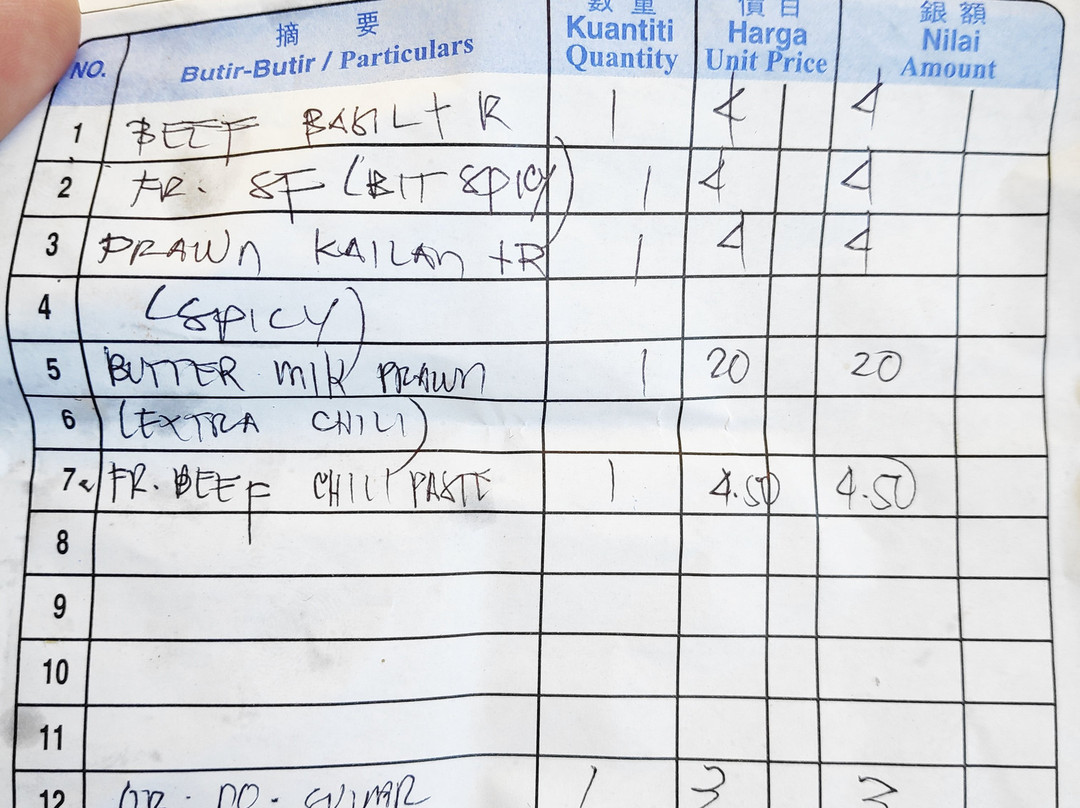 摘 要 數 量 價 目 銀 額
NO. Butir-Butir / Particulars Kuantiti Quantity Harga Unit Price Nilai Amount
1 BEEF BASIL + R 1 4 4
2 FR. SF (BIT SPICY) 1 4 4
3 PRAWN KAILAN + R 1 4 4
4 (SPICY)
5 BUTTER MILK PRAWN 1 20 20
6 (EXTRA CHILI)
7 FR. BEEF CHILI PASTE 1 4.50 4.50
8
9
10
11
12 1 3 3